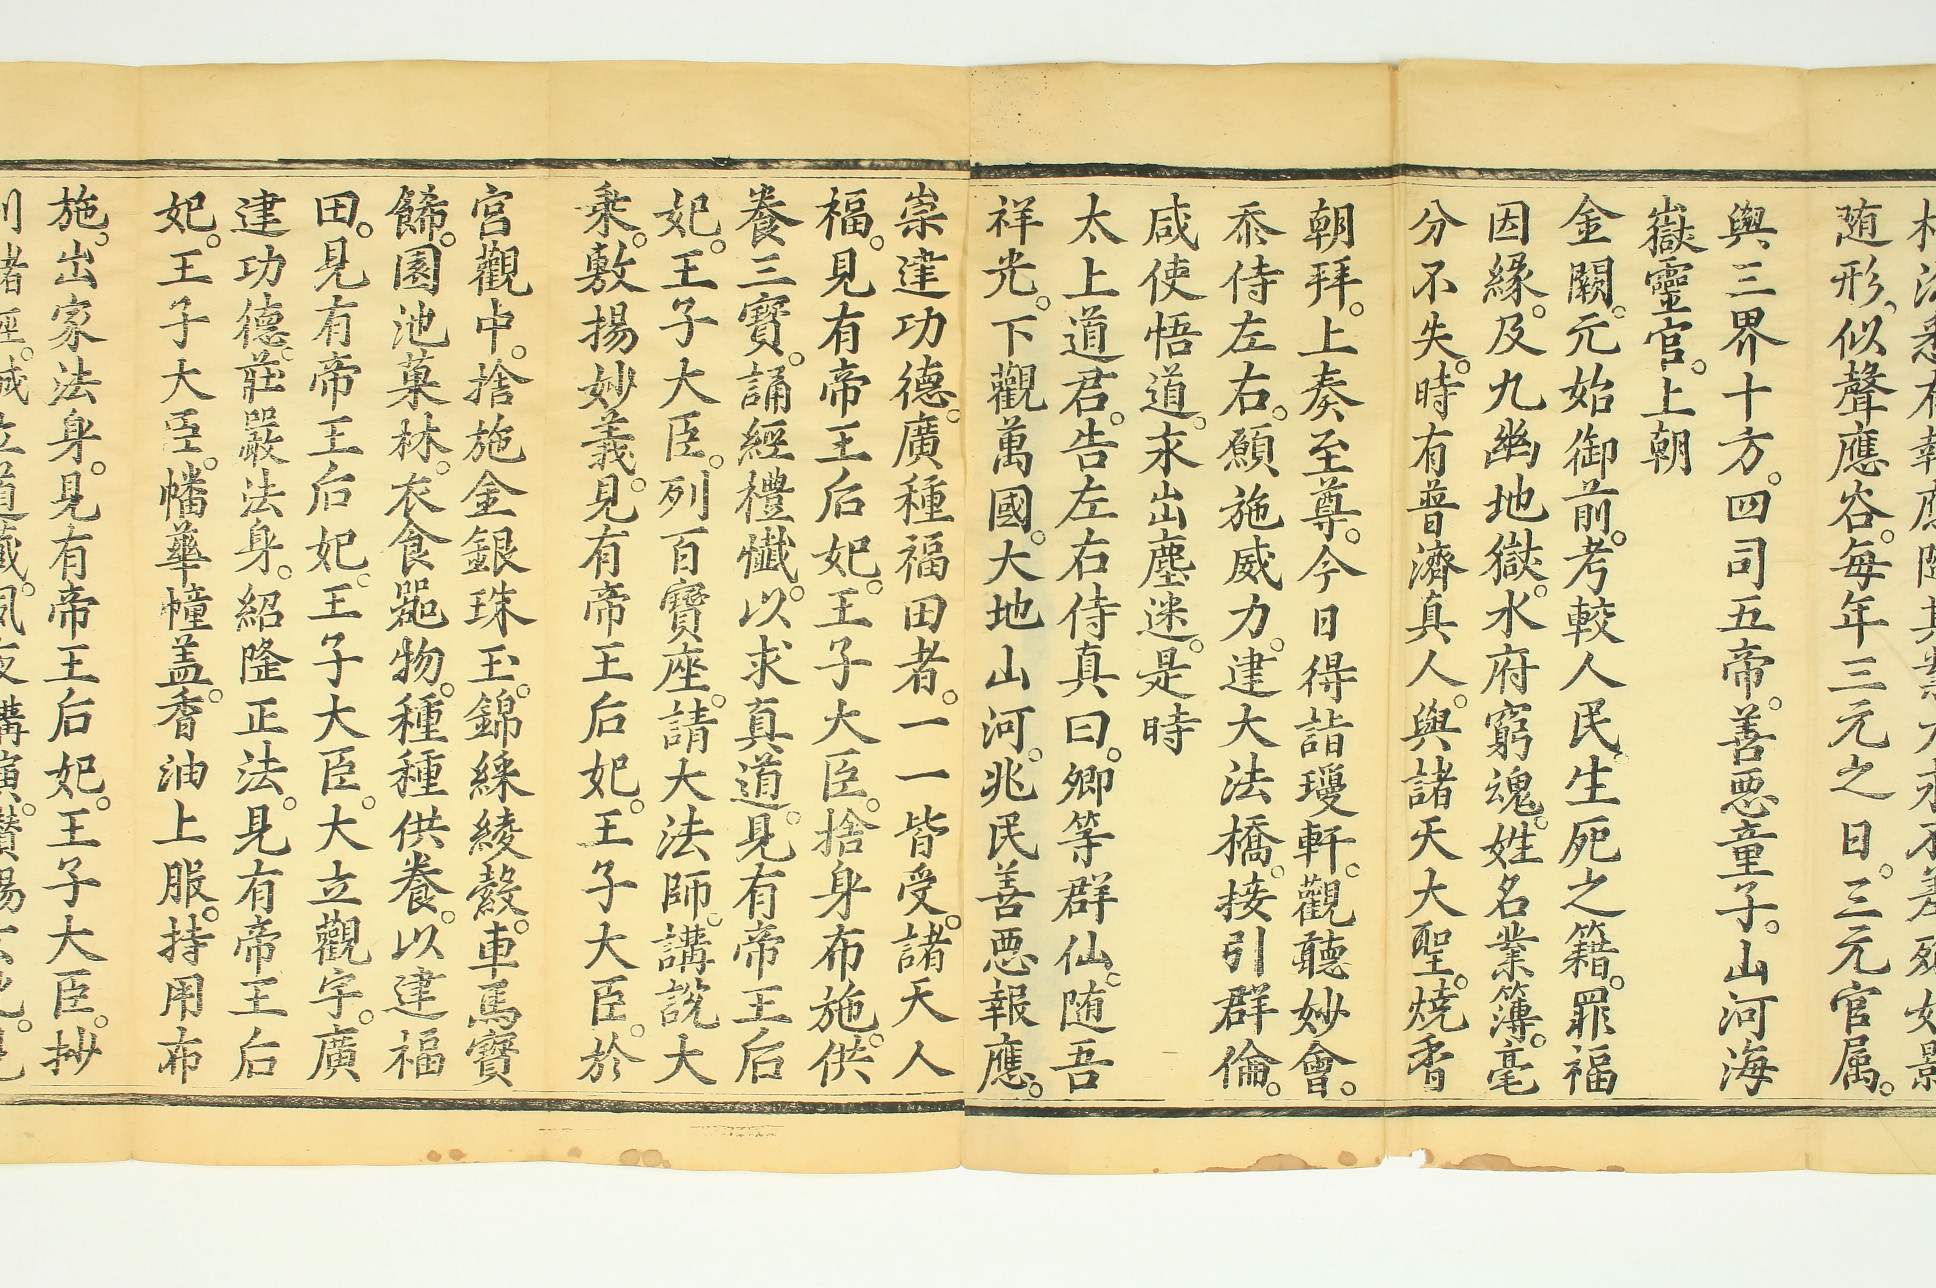 法悉有報應隨其業大求不差殃如影
随形、似聲應谷。每年三元之日。三元官属。
與三界十方。四司五帝。善悪童子。山河海
嶽靈官。上朝
金闕。元始御前。考較人民生死之籍。罪福
因緣。及九幽地獄。水府窮魂。姓名業簿。毫
分不失。時有普濟真人。與諸天大聖。燒香
朝拜。上奏至尊。今日得詣瓊軒。觀聽妙會。
忝侍左右。願施威力。建大法橋。接引群倫。
咸使悟道。永出塵迷。是時
太上道君。告左右侍真曰。卿等群仙。随吾
祥光。下觀萬國。大地山河。兆民善悪報應。
崇建功德。廣種福田者。一一皆受。諸天人
福。見有帝王后妃。王子大臣。捨身布施。供
養三寶。誦經禮懺。以求真道。見有帝王后
妃。王子大臣。列百寶座。請大法師。講說大
乗。敷揚妙義。見有帝王后妃。王子大臣。於
宮觀中。捨施金銀珠玉。錦綵綾縠。車馬寶
飾。園池菓林。衣食器物。種種供養。以建福
田。見有帝王后妃。王子大臣。大立觀宇。廣
建功德。莊嚴法身。紹隆正法。見有帝王后
妃。王子大臣。幡華幢盖。香油上服。持用布
施。出家法身。見有帝王后妃。王子大臣。抄